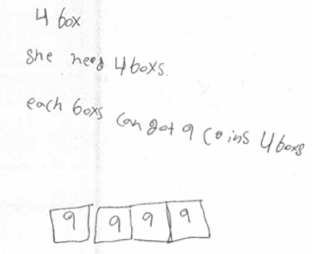 4 box
she need 4 boxs.
each boxs can got 9 coins 4 boxs
9 9 9 9